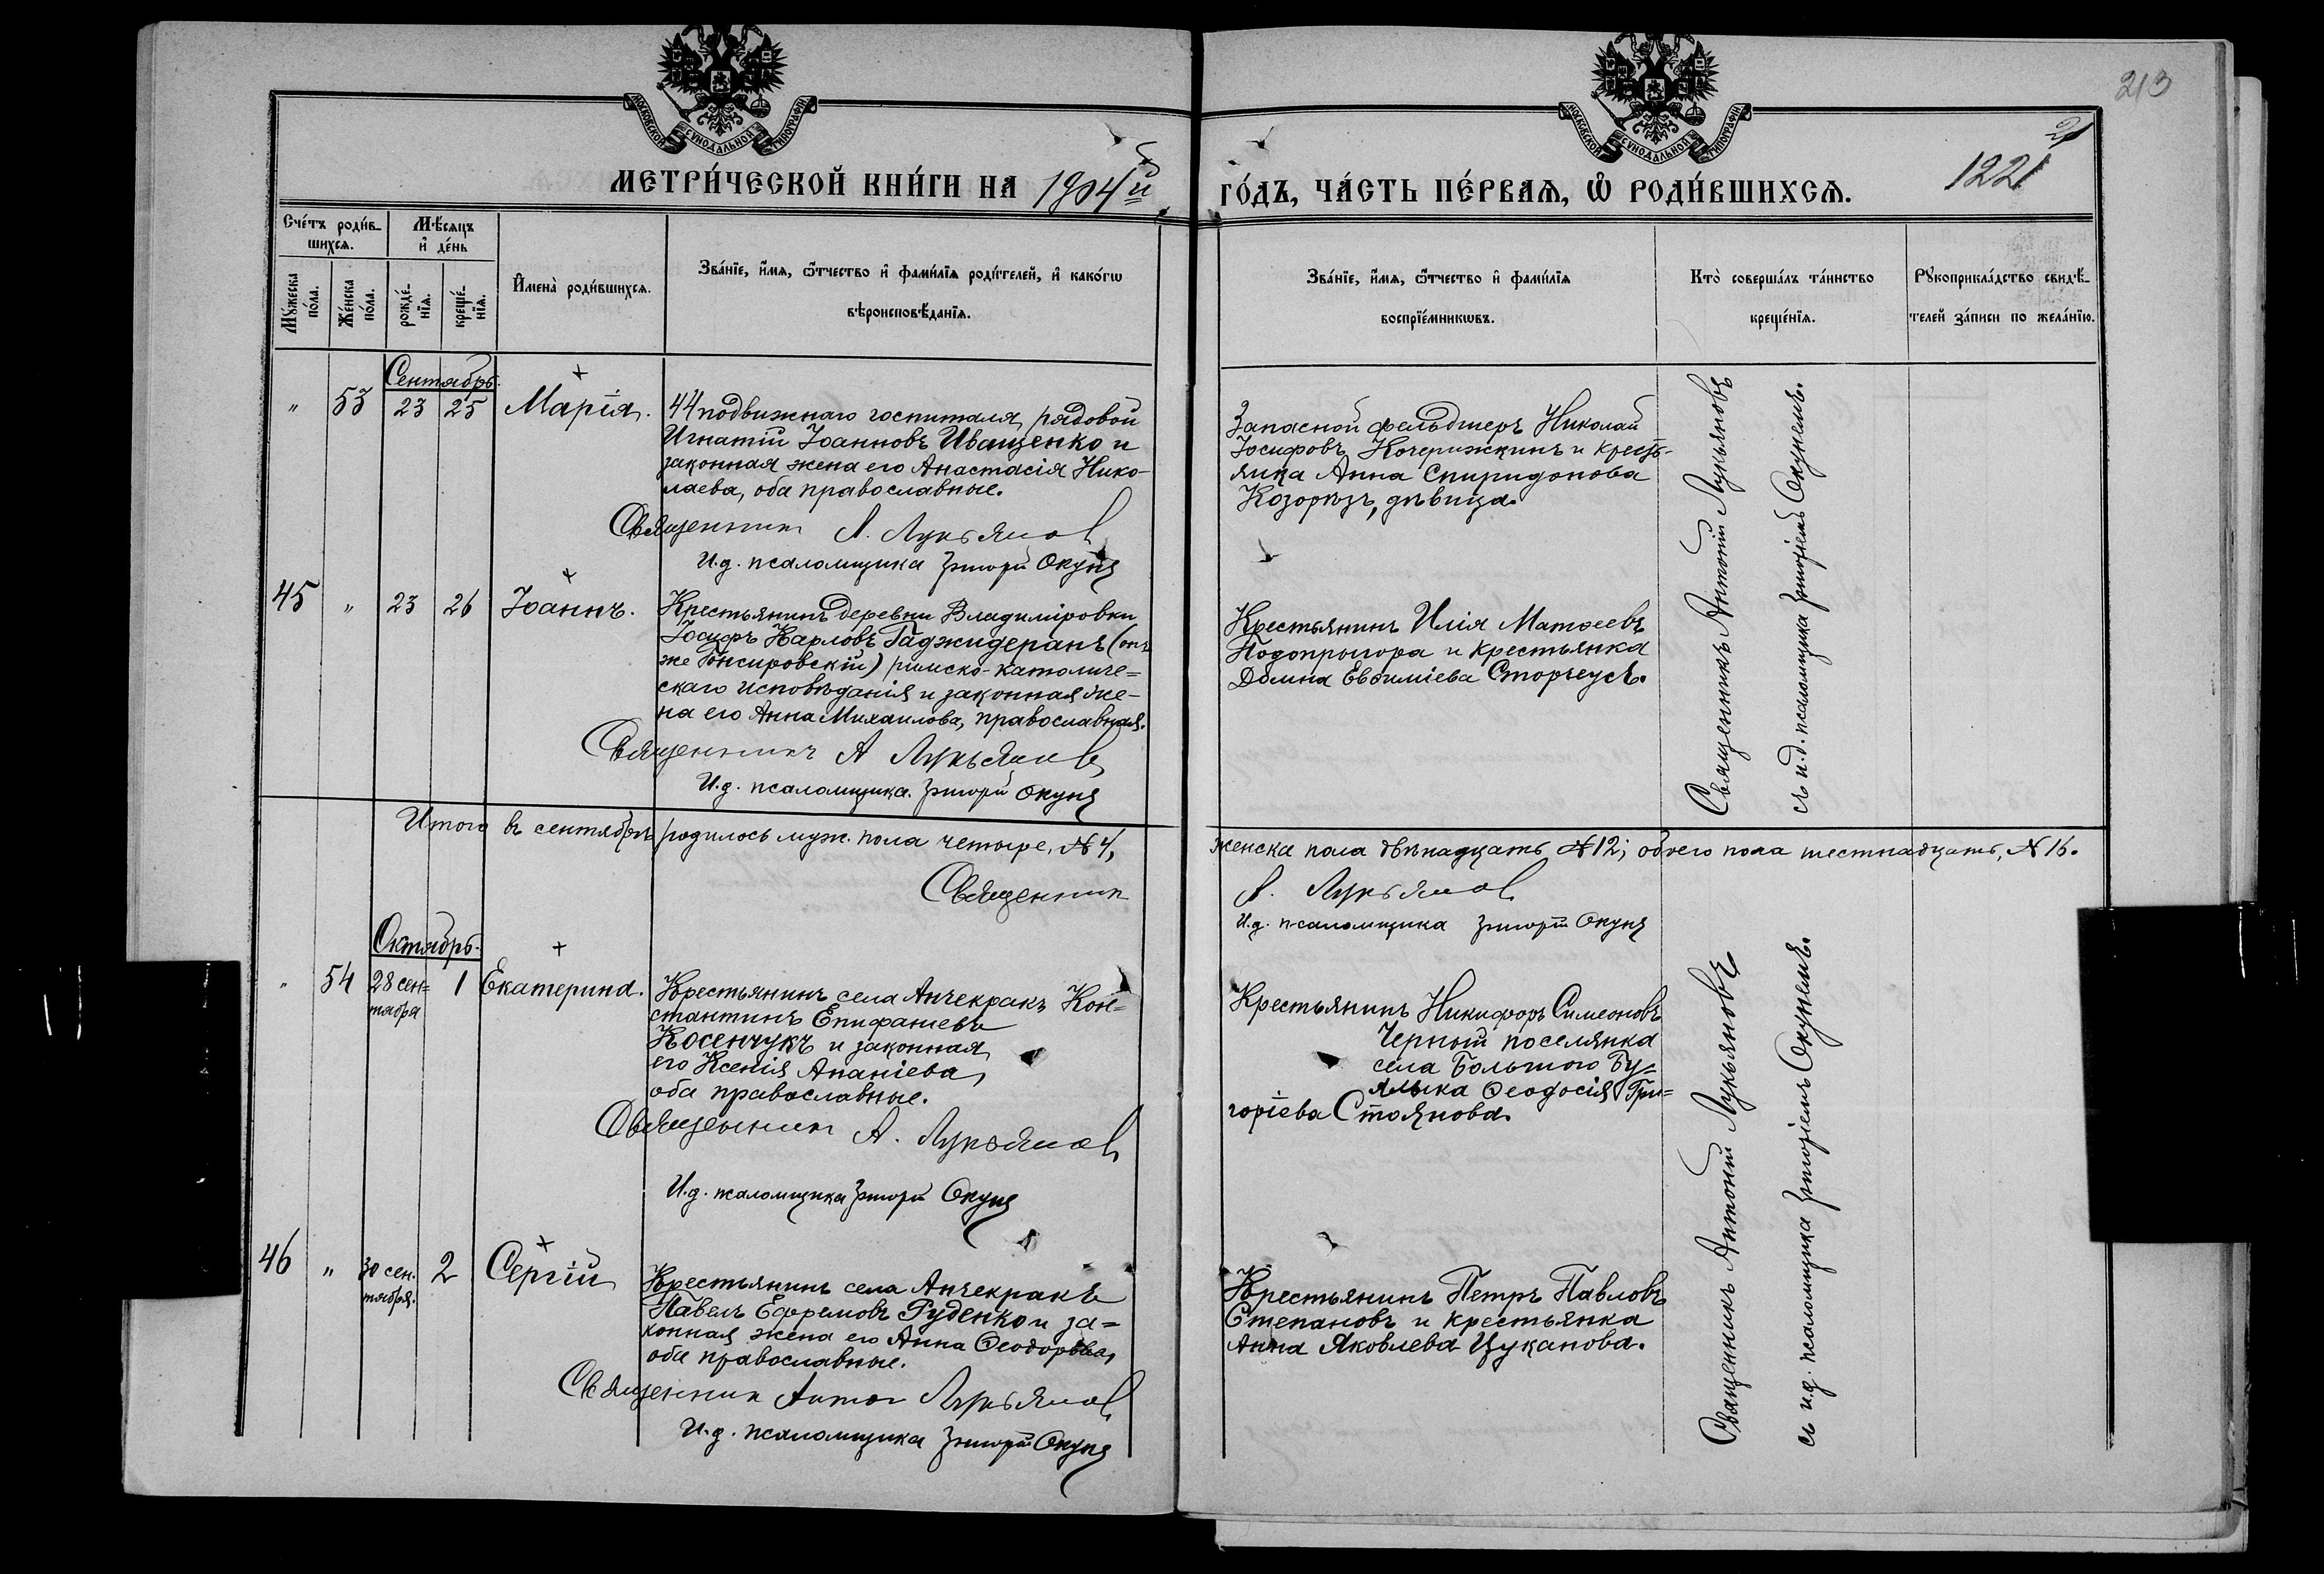 213
21
1221
МОСКОВСКОЙ СУНОДАЛЬНОЙ ТИПОГРАФІИ
МОСКОВСКОЙ СУНОДАЛЬНОЙ ТИПОГРАФІИ
МЕТРИ́ЧЕСКОЙ КНИ́ГИ НА 1904й ГО́ДЪ, ЧА́СТЬ ПЕ́РВАѦ, Ѡ҆ РОДИ́ВШИХСѦ.
Сче́тъ роди́в-
шихсѧ.
Мѣ́сѧцъ
и҆ де́нь
Мꙋ́жеска по́ла.
Же́нска по́ла.
рожде́-
нїѧ.
креще́-
нїѧ.
И҆мена̀ роди́вшихсѧ.
Зва́нїе, и҆́мѧ, ѻ҆́тчество и҆ фами́лїѧ роди́телей, и҆ како́гѡ
вѣроисповѣ́данїѧ.
Зва́нїе, и҆́мѧ, ѻ҆́тчество и҆ фами́лїѧ
воспрїе́мникѡвъ.
Кто̀ соверша́лъ та́инство
креще́нїѧ.
Рꙋкоприкла́дство свидѣ́-
телей за́писи по жела́нїю.
Сентябрь.
" 53 23 25 Марія.
44 подвижнаго госпиталя, рядовой
Игнатій Іоанновъ Иващенко и
законная жена его Анастасія Нико-
лаева, оба православные.
Священник А. Лукьянов
И.д. псаломщика Григорій Окунь
Запасной фельдшеръ Николай
Іосифовъ Кочерижкинъ и кресть-
янка Анна Спиридонова
Козорѣзъ, дѣвица.
Священникъ Антоній Лукьяновъ
съ и.д. псаломщика Григоріемъ Окунемъ.
45 " 23 26 Іоаннъ.
Крестьянинъ деревни Владиміровки
Іосифъ Карловъ Гаджидеранъ (онъ
же Гонсировскій) римско-католиче=
скаго исповѣданія и законная же-
на его Анна Михаилова, православная.
Священникъ А Лукьянов
И.д. псаломщика Григорій Окунь
Крестьянинъ Илія Матѳеевъ
Подопригора и крестьянка
Домна Евѳиміева Сторчеусъ.
Итого въ сентябрѣ родилось муж. пола четыре, № 4, женска пола двѣнадцать № 12; обоего пола шестнадцать, № 16.
Священник А. Лукьянов
И.д. псаломщика Григорій Окунь
Октябрь.
" 54 28 сен=
тября 1 Екатерина.
Крестьянинъ села Анчекракъ Кон=
стантинъ Епифаніевъ
Косенчукъ и законная
его Ксенія Ананіева,
оба православные.
Священник А. Лукьянов
И.д. псаломщика Григорій Окунь
Крестьянинъ Никифоръ Симеоновъ
Черный поселянка
села Большого Бу=
ялыка Ѳеодосія Гри=
горіева Стоянова.
Священникъ Антоній Лукьяновъ
съ и.д. псаломщика Григоріемъ Окунемъ.
46 " 30 сен.
тября. 2 Сергій
Крестьянинъ села Анчекракъ
Павелъ Ефремовъ Руденко и за=
конная жена его Анна Ѳеодорова,
оба православные.
Священник Антон Лукьянов
И.д. псаломщика Григорій Окунь
Крестьянинъ Петръ Павловъ
Степановъ и крестьянка
Анна Яковлева Цуканова.